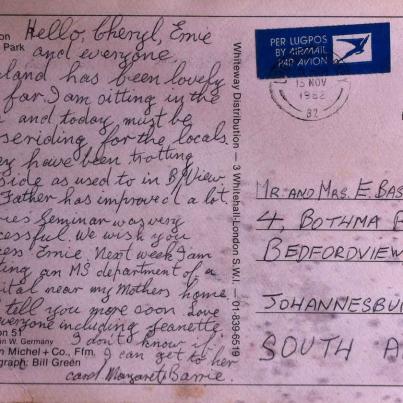 Hello, Cheryl, Ernie
on
Park
and everyone,
land has been lovely
far. I am sitting in the
and today must be
seriding for the locals.
ey have been trotting
side as used to in B/View.
Father has improved a lot
ies Seminar was very
cessful. We wish you
cess Ernie. Next week I am
ting an MS department of a
ital near my Mothers home
tell you more soon. Love
everyone including Jeanette.
I don't know if
I can get to her
card. Margaret, Barrie.
on 51
in W. Germany
n Michel + Co., Ffm.
graph: Bill Green
Whiteway Distribution — 3 Whitehall-London S.W.1 — 01-839-6519
PER LUGPOS
BY AIRMAIL
PAR AVION
15 NOV
1982
MR. AND MRS. E. BAS
4, BOTHMA R
BEDFORDVIEW
JOHANNESBU
SOUTH A